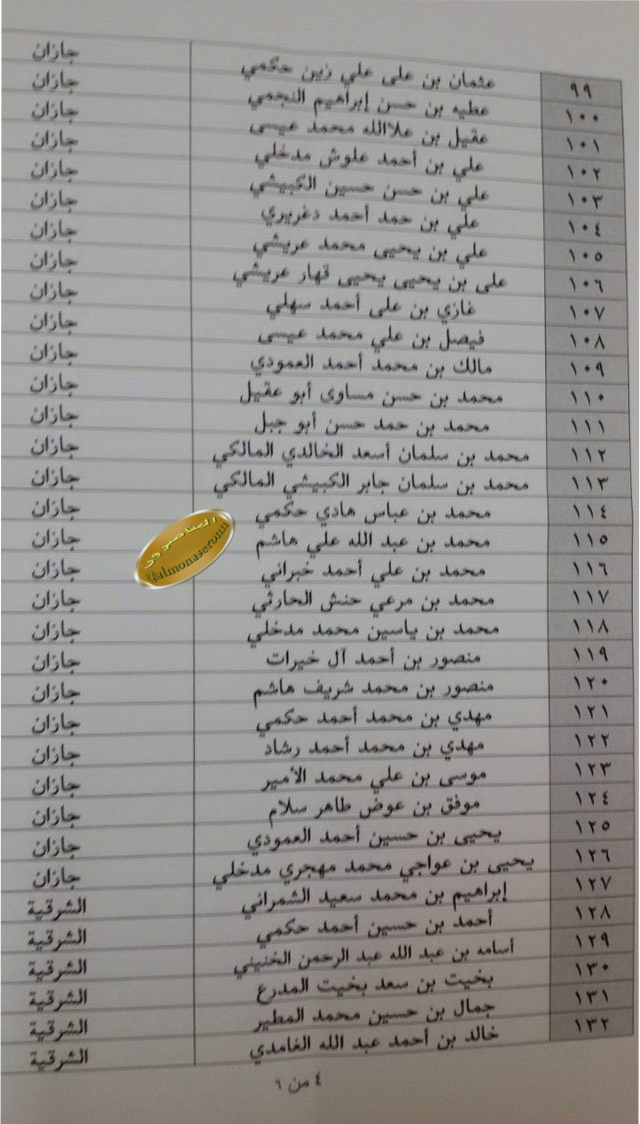 ٩٩ عثمان بن على علي زين حكمي جازان
١٠٠ عطيه بن حسن إبراهيم النجمي جازان
١٠١ عقيل بن علاالله محمد عيسى جازان
١٠٢ علي بن أحمد علوش مدخلي جازان
١٠٣ علي بن حسن حسين الكبيشي جازان
١٠٤ علي بن حمد أحمد دغريري جازان
١٠٥ علي بن يحيى محمد عريشي جازان
١٠٦ على بن يحيى يحيى قهار عريشي جازان
١٠٧ غازي بن على أحمد سهلي جازان
١٠٨ فيصل بن علي محمد عيسى جازان
١٠٩ مالك بن محمد أحمد العمودي جازان
١١٠ محمد بن حسن مساوى أبو عقيل جازان
١١١ محمد بن حمد حسن أبو جبل جازان
١١٢ محمد بن سلمان أسعد الخالدي المالكي جازان
١١٣ محمد بن سلمان جابر الكبيشي المالكي جازان
١١٤ محمد بن عباس هادي حكمي جازان
١١٥ محمد بن عبد الله علي هاشم جازان
١١٦ محمد بن علي أحمد خبراني جازان
١١٧ محمد بن مرعي حنش الحارثي جازان
١١٨ محمد بن ياسين محمد مدخلي جازان
١١٩ منصور بن أحمد آل خيرات جازان
١٢٠ منصور بن محمد شريف هاشم جازان
١٢١ مهدي بن محمد أحمد حكمي جازان
١٢٢ مهدي بن محمد أحمد رشاد جازان
١٢٣ موسى بن علي محمد الأمير جازان
١٢٤ موفق بن عوض طاهر سلام جازان
١٢٥ يحيى بن حسين أحمد العمودي جازان
١٢٦ يحيى بن عواجي محمد مهجري مدخلي جازان
١٢٧ إبراهيم بن محمد سعيد الشمراني الشرقية
١٢٨ أحمد بن حسين أحمد حكمي الشرقية
١٢٩ أسامه بن عبد الله عبد الرحمن الخنيني الشرقية
١٣٠ بخيت بن سعد بخيت المدرع الشرقية
١٣١ جمال بن حسين محمد المطير الشرقية
١٣٢ خالد بن أحمد عبد الله الغامدي الشرقية
٤ من ٦
المناصرون
@almonaseronn